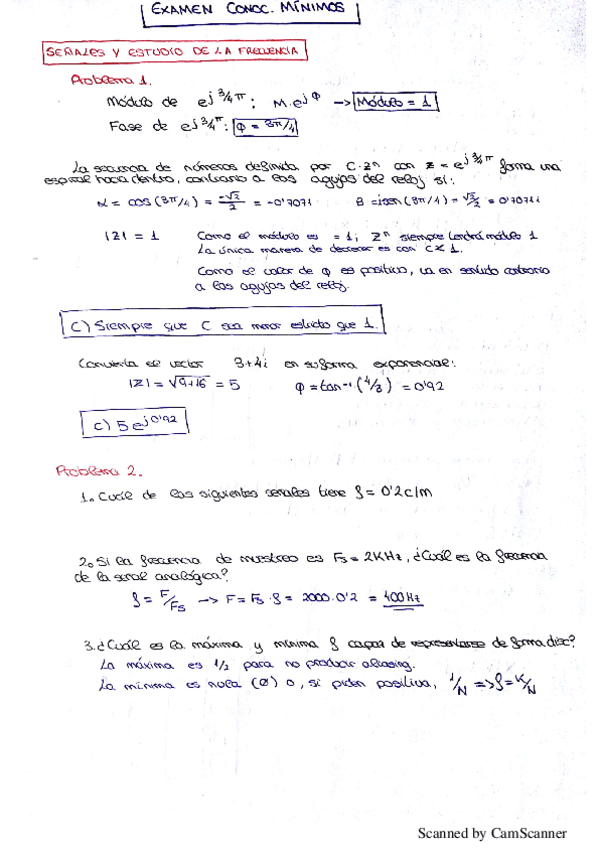 EXAMEN CONOC. MÍNIMOS
SEÑALES Y ESTUDIO DE LA FRECUENCIA
Problema 1.
Módulo de e^{j 3/4 π} : M·e^{jφ} → Módulo = 1
Fase de e^{j 3/4 π} : φ = 3π/4
La secuencia de números definida por C·Zⁿ con Z = e^{j 3/4 π} forma una
espiral hacia dentro, contrario a las agujas del reloj si:
α = cos(3π/4) = -√2/2 = -0'7071 β = sen(3π/4) = √2/2 = 0'7071
|Z| = 1 Como el módulo es = 1, Zⁿ siempre tendrá módulo 1
La única manera de decrecer es con C < 1.
Como el valor de φ es positivo, va en sentido contrario
a las agujas del reloj.
C) Siempre que C sea menor estricto que 1.
Convierta el vector 3+4i en su forma exponencial:
|Z| = √9+16 = 5 φ = tan⁻¹(4/3) = 0'92
c) 5 e^{j0'92}
Problema 2.
1. Cuál de las siguientes señales tiene f = 0'2 c/m
2. Si la frecuencia de muestreo es Fs = 2KHz, ¿Cuál es la frecuencia
de la señal analógica?
f = F/Fs → F = Fs · f = 2000·0'2 = 400Hz
3. ¿Cuál es la máxima y mínima f capaz de representarse de forma disc?
La máxima es 1/2 para no producir aliasing.
La mínima es nula (Ø) o, si piden positiva, 1/N => f = K/N
Scanned by CamScanner